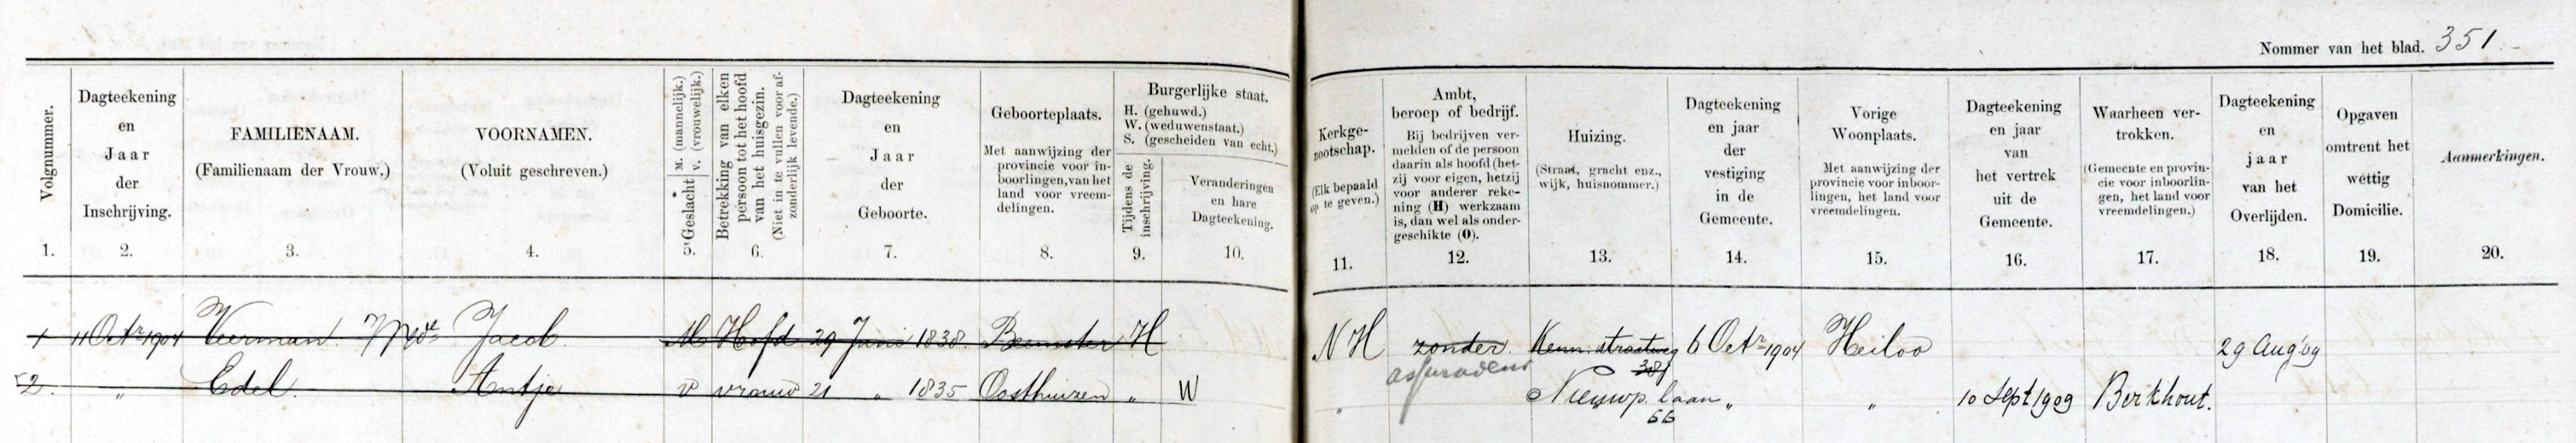 Nommer van het blad. 351.
Volgnummer.
1.
Dagteekening
en
Jaar
der
Inschrijving.
2.
FAMILIENAAM.
(Familienaam der Vrouw.)
3.
VOORNAMEN.
(Voluit geschreven.)
4.
Geslacht M. (mannelijk.)
V. (vrouwelijk.)
5.
Betrekking van elken
persoon tot het hoofd
van het huisgezin.
(Niet in te vullen voor af-
zonderlijk levende.)
6.
Dagteekening
en
Jaar
der
Geboorte.
7.
Geboorteplaats.
Met aanwijzing der
provincie voor in-
boorlingen, van het
land voor vreem-
delingen.
8.
Burgerlijke staat.
H. (gehuwd.)
W. (weduwenstaat.)
S. (gescheiden van echt.)
Tijdens de
inschrijving.
9.
Veranderingen
en hare
Dagteekening.
10.
Kerkge-
nootschap.
(Elk bepaald
op te geven.)
11.
Ambt,
beroep of bedrijf.
Bij bedrijven ver-
melden of de persoon
daarin als hoofd (het-
zij voor eigen, hetzij
voor anderer reke-
ning (H) werkzaam
is, dan wel als onder-
geschikte (O).
12.
Huizing.
(Straat, gracht enz.,
wijk, huisnommer.)
13.
Dagteekening
en jaar
der
vestiging
in de
Gemeente.
14.
Vorige
Woonplaats.
Met aanwijzing der
provincie voor inboor-
lingen, het land voor
vreemdelingen.
15.
Dagteekening
en jaar
van
het vertrek
uit de
Gemeente.
16.
Waarheen ver-
trokken.
(Gemeente en provin-
cie voor inboorlin-
gen, het land voor
vreemdelingen.)
17.
Dagteekening
en
jaar
van het
Overlijden.
18.
Opgaven
omtrent het
wettig
Domicilie.
19.
Aanmerkingen.
20.
1 11 Octr 1904 Veerman Jacob. M Hofd 29 Juni 1838. Beemster H N H zonder Kenn. straatweg 6 Octr 1904 Heiloo 29 Aug '09
381
2. " Edel. Antje v vrouw 21 " 1835 Oosthuizen " W " Nieuwp. laan " " 10 Sept 1909 Berkhout.
66